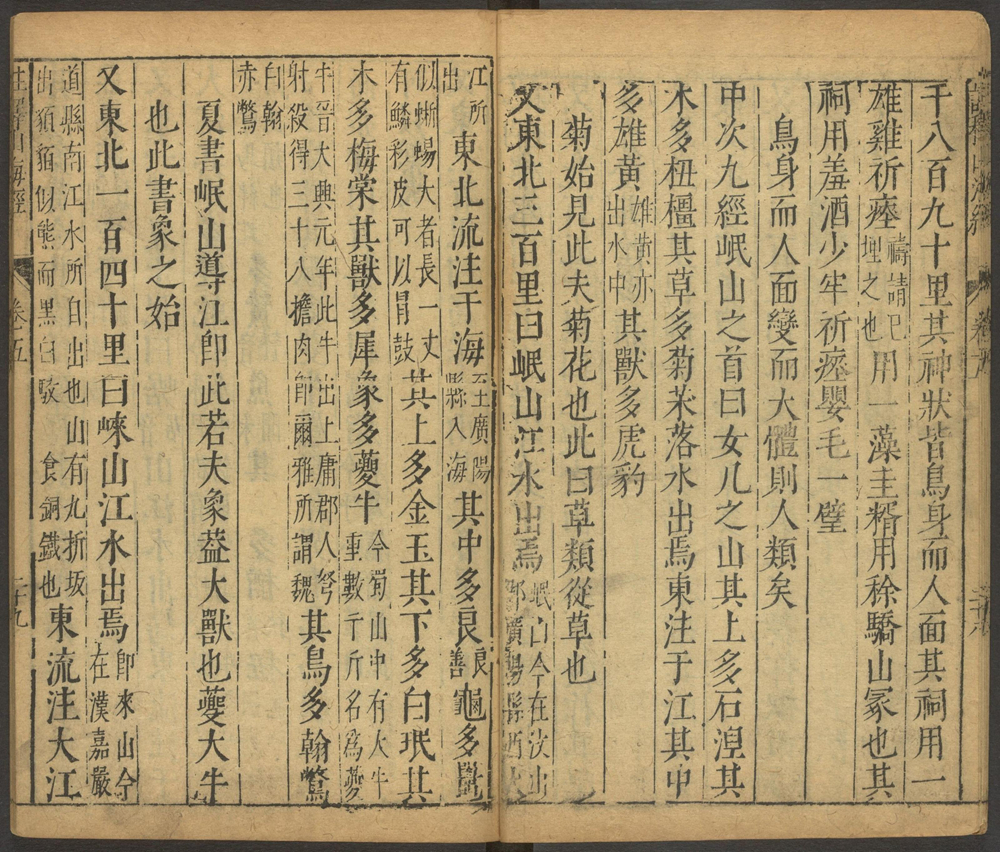 千八百九十里其神狀皆鳥身而人面其祠用一
雄雞祈瘞禱請已埋之也用一藻圭糈用稌驕山冢也其
祠用羞酒少牢祈瘞嬰毛一璧
鳥身而人面變而大體則人類矣
中次九經岷山之首曰女几之山其上多石涅其
木多杻橿其草多菊茉落水出焉東注于江其中
多雄黃雄黃亦出水中其獸多虎豹
菊始見此夫菊花也此曰草類從草也
又東北三百里曰岷山江水出焉岷山今在汶山郡廣陽縣西大
江所出東北流注于海至廣陽縣入海其中多良善龜多鼉
似蜥蜴大者長一丈有鱗彩皮可以冒鼓其上多金玉其下多白珉其
木多梅棠其獸多犀象多夔牛今蜀山中有大牛重數千斤名為夔
牛晉大興元年此牛出上庸郡人弩射殺得三十八擔肉卽爾雅所謂魏其鳥多翰鷩
白翰赤鷩
夏書岷山導江卽此若夫象葢大獸也夔大牛
也此書象之始
又東北一百四十里曰崍山江水出焉卽來山今在漢嘉嚴
道縣南江水所自出也山有九折坂出貊貊似熊而黑白駮食銅鐵也東流注大江
卷五
二十九